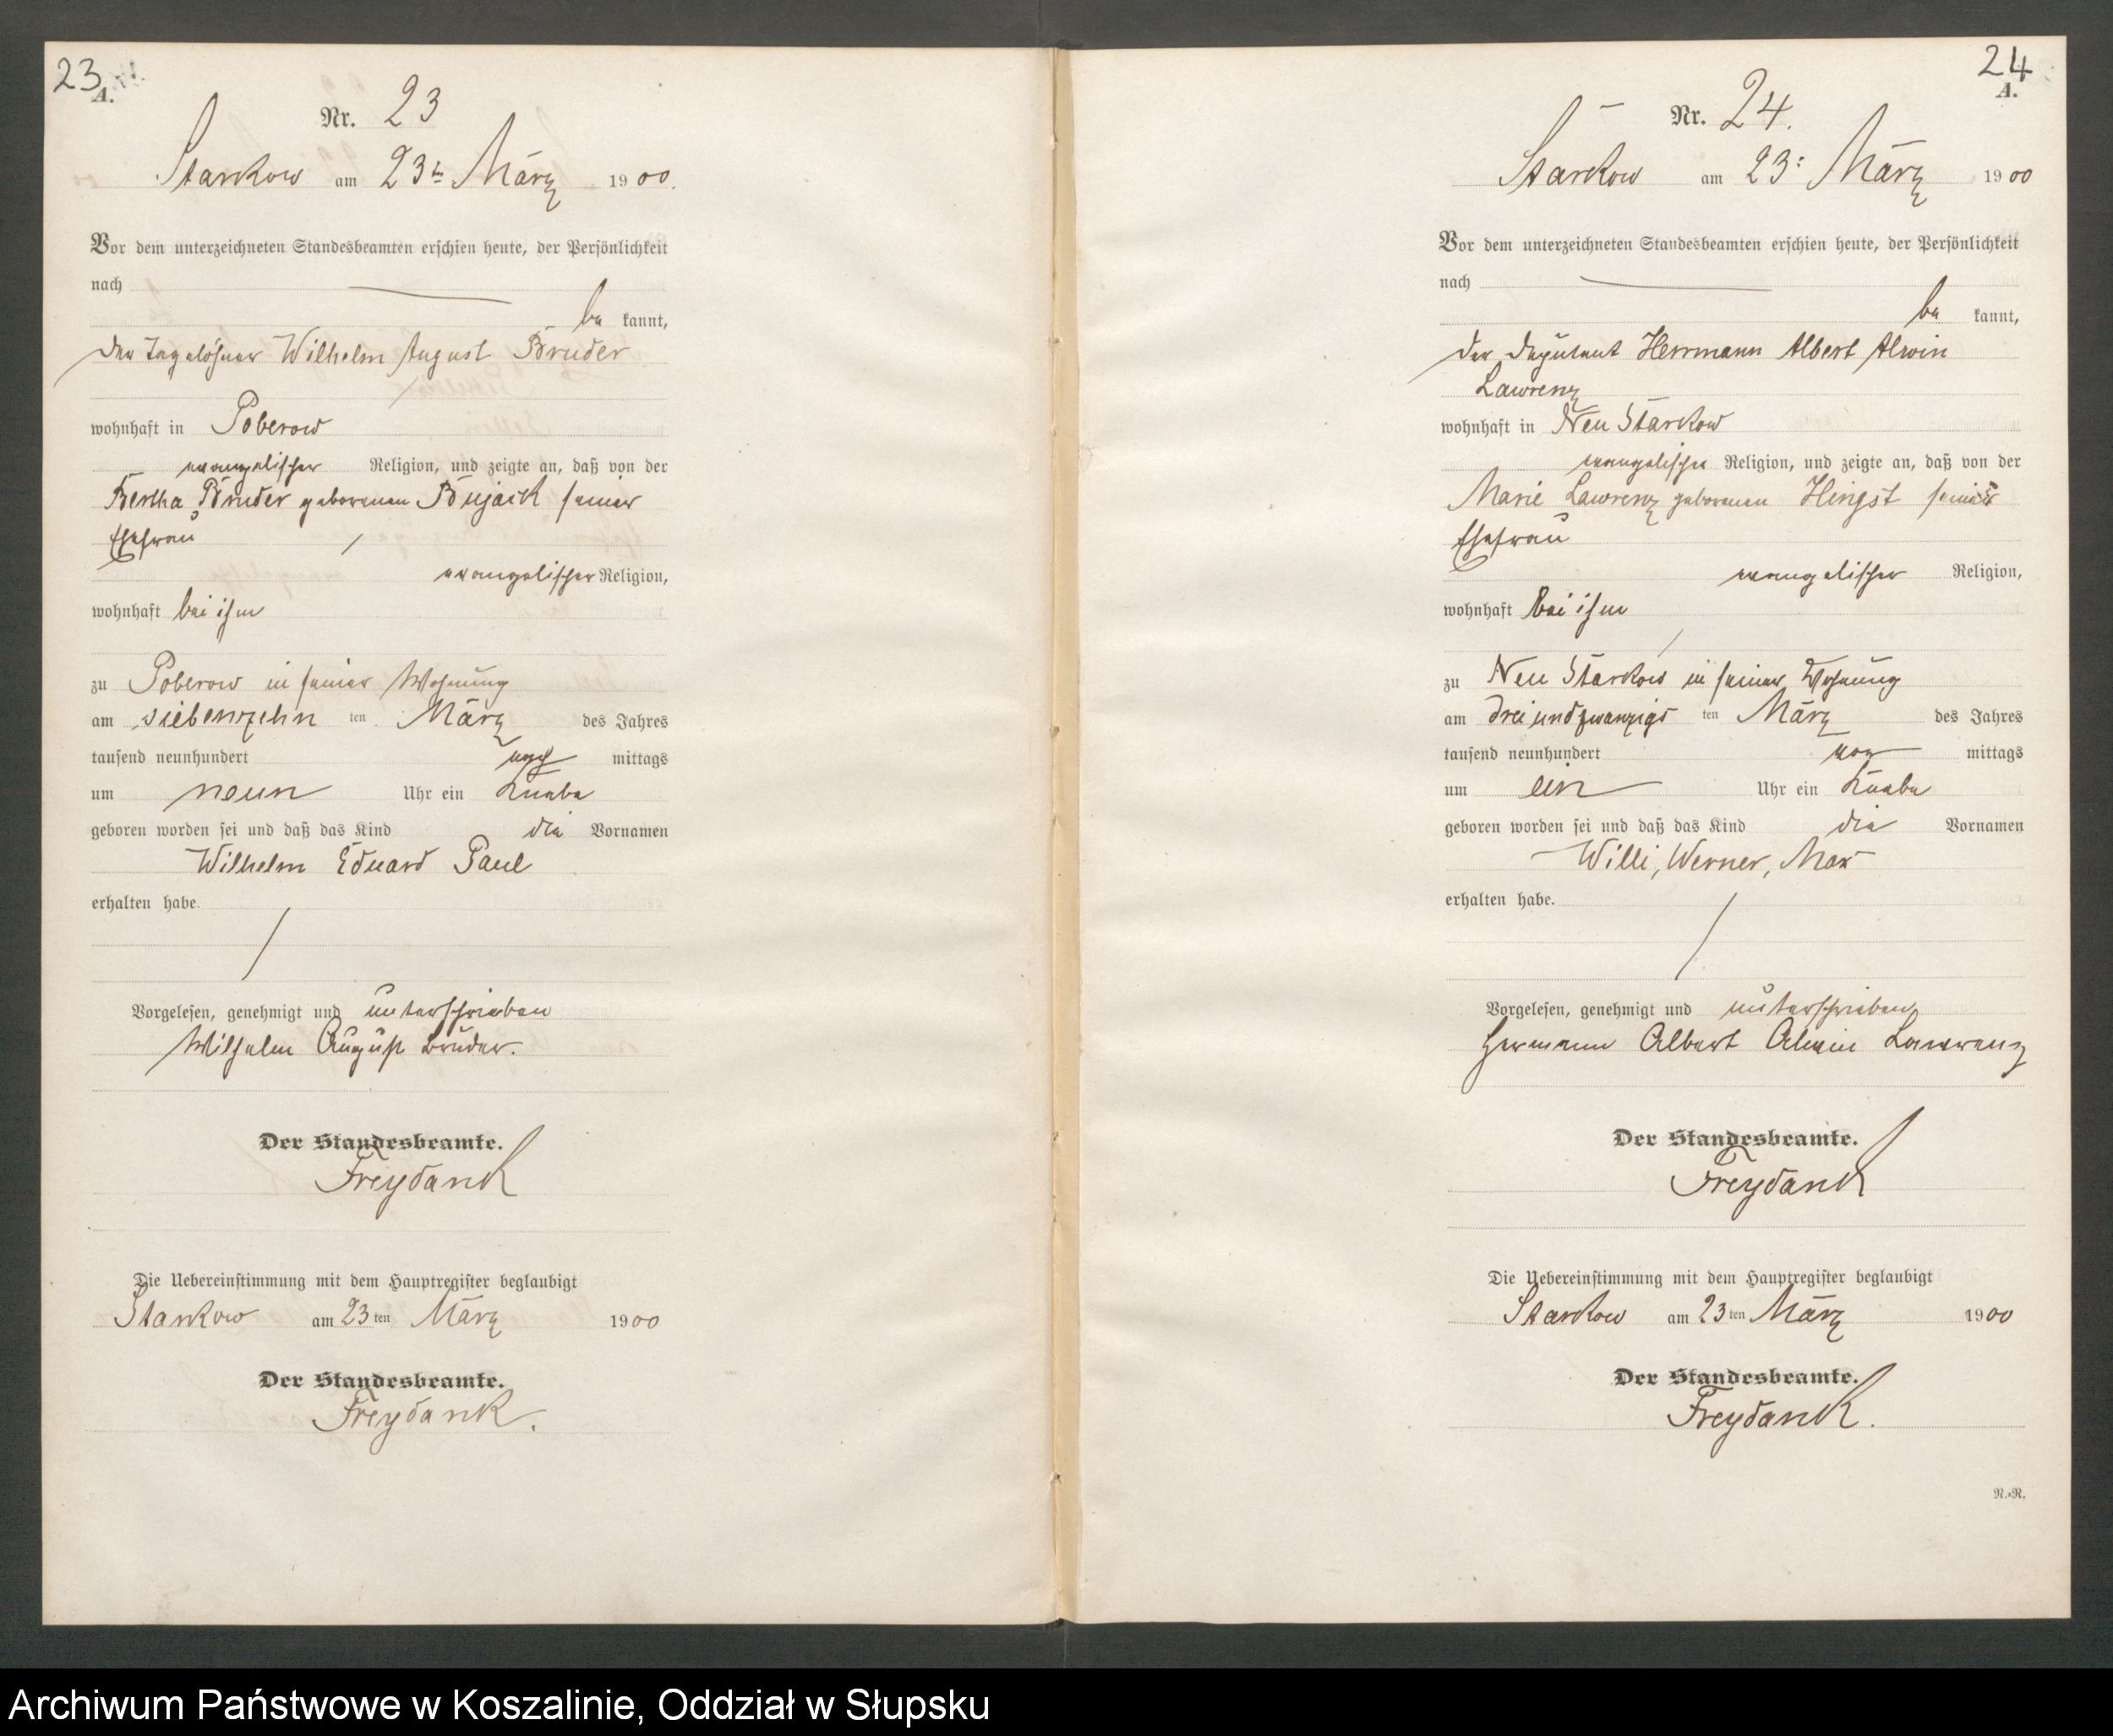 23
A.
Nr. 23
Starkow am 23ten März 1900.
Vor dem unterzeichneten Standesbeamten erschien heute, der Persönlichkeit
nach
be kannt,
der Tagelöhner Wilhelm August Bruder
wohnhaft in Poberow
evangelischer Religion, und zeigte an, daß von der
Bertha Bruder geborenen Bujack seiner
Ehefrau
evangelischer Religion,
wohnhaft bei ihm
zu Poberow in seiner Wohnung
am siebenzehn ten März des Jahres
tausend neunhundert nach mittags
um neun Uhr ein Knabe
geboren worden sei und daß das Kind die Vornamen
Wilhelm Eduard Paul
erhalten habe.
Vorgelesen, genehmigt und unterschrieben
Wilhelm August Bruder.
Der Standesbeamte.
Freydank
Die Uebereinstimmung mit dem Hauptregister beglaubigt
Starkow am 23ten März 1900
Der Standesbeamte.
Freydank.
24
A.
Nr. 24.
Starkow am 23: März 1900
Vor dem unterzeichneten Standesbeamten erschien heute, der Persönlichkeit
nach
be kannt,
der Deputant Herrmann Albert Alwin
Lawrenz
wohnhaft in Neu Starkow
evangelischer Religion, und zeigte an, daß von der
Marie Lawrenz geborenen Hingst seiner
Ehefrau
evangelischer Religion,
wohnhaft bei ihm
zu Neu Starkow in seiner Wohnung
am dreiundzwanzigs ten März des Jahres
tausend neunhundert vor mittags
um ein Uhr ein Knabe
geboren worden sei und daß das Kind die Vornamen
Willi, Werner, Max
erhalten habe.
Vorgelesen, genehmigt und unterschrieben
Hermann Albert Alwin Lawrenz
Der Standesbeamte.
Freydank
Die Uebereinstimmung mit dem Hauptregister beglaubigt
Starkow am 23ten März 1900
Der Standesbeamte.
Freydank.
N.=R.
Archiwum Państwowe w Koszalinie, Oddział w Słupsku